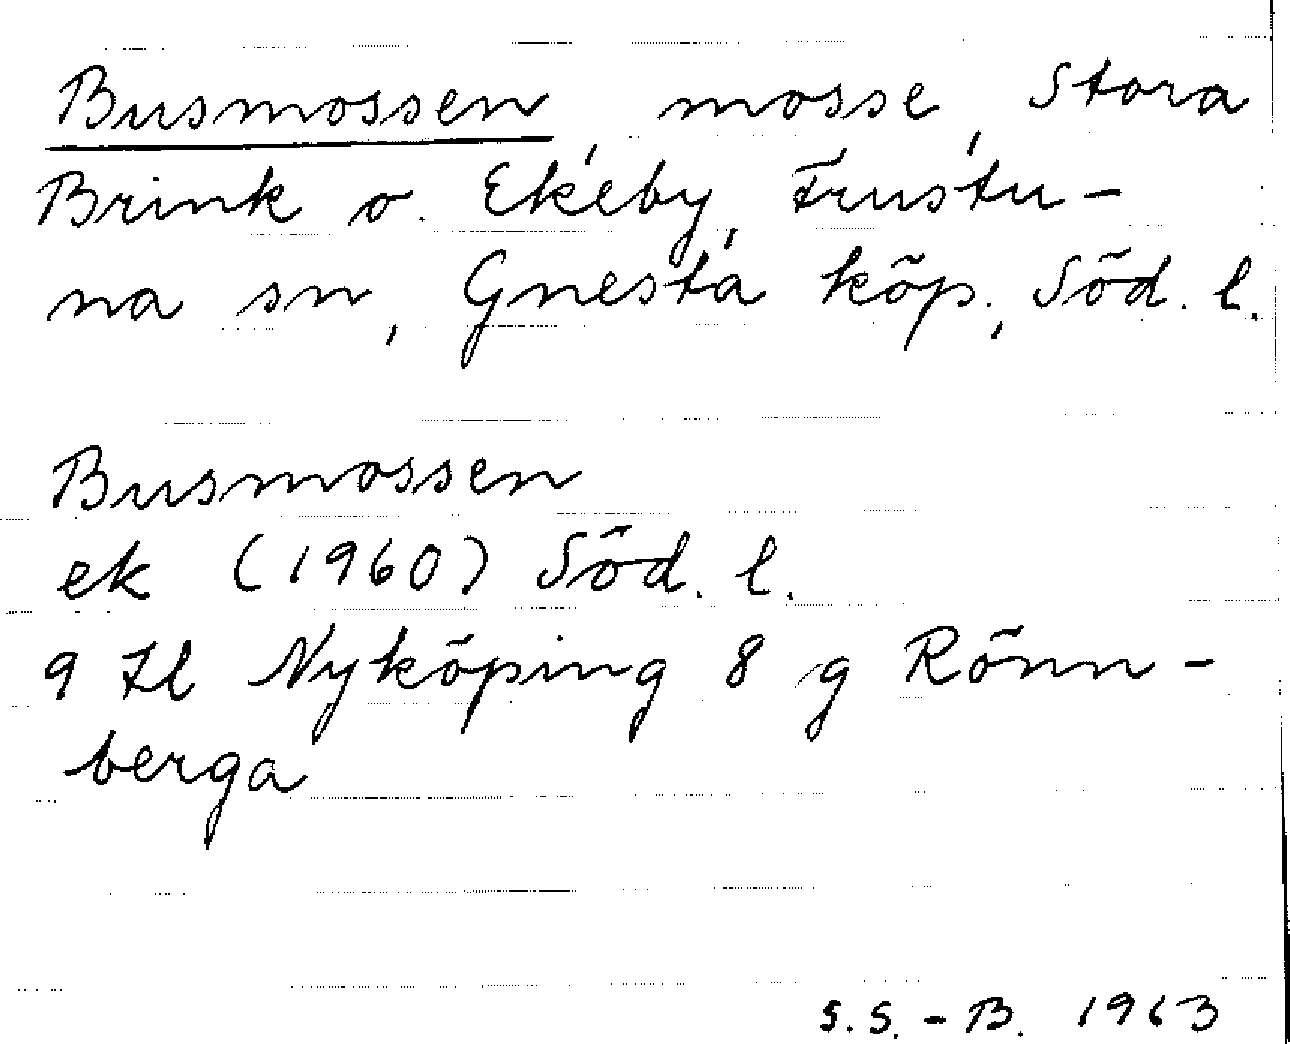 Busmossen, mosse, Stora
Brink o. Ekeby, Frustu-
na sn, Gnesta köp., Söd. l.
Busmossen
ek (1960) Söd. l.
9 H Nyköping 8 g Rönn-
berga
S. S. - B. 1963